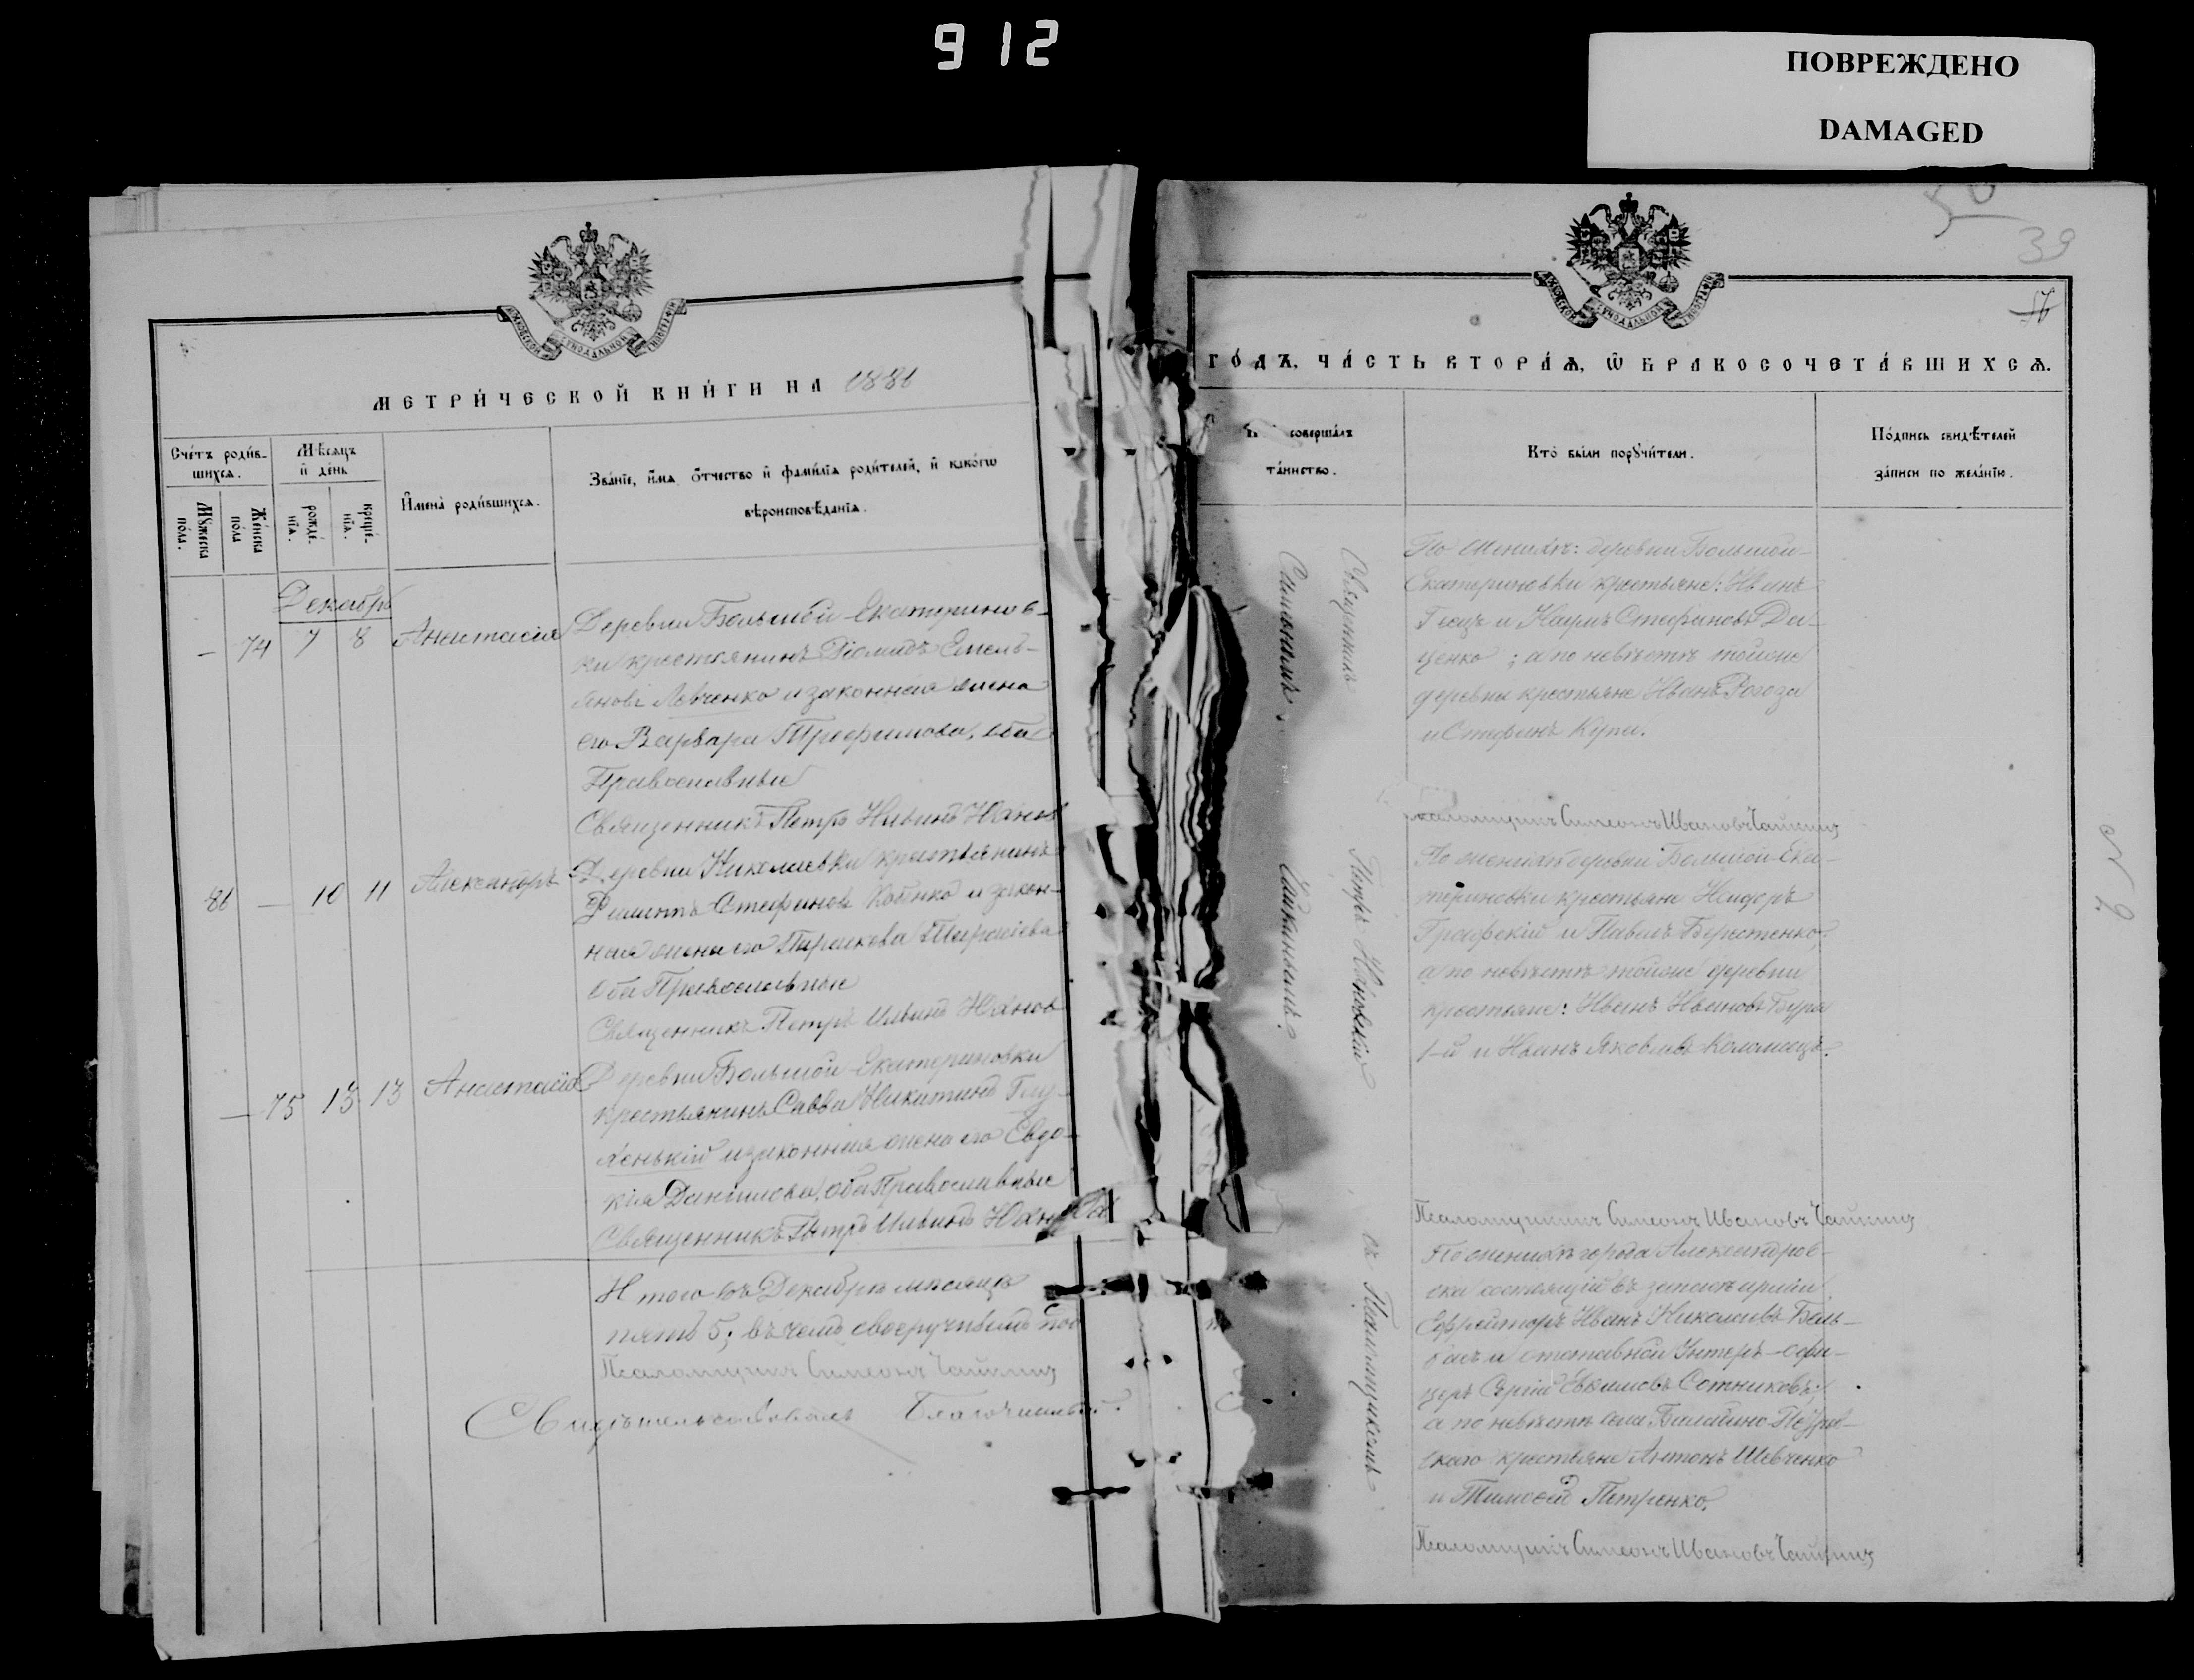 912
ПОВРЕЖДЕНО
DAMAGED
МЕТРИ́ЧЕСКОЙ КНИ́ГИ НА 1881
Сче́тъ роди́в-
шихсѧ.
Мѣ́сѧцъ
и҆ де́нь
Мꙋ́жеска
по́ла.
Же́нска
по́ла
рожде́-
нїѧ.
креще́-
нїѧ.
И҆мена̀ роди́вшихсѧ.
Зва́нїе, и҆́мѧ, ѻ҆́тчество и҆ фами́лїѧ роди́телей, и҆ како́гѡ
вѣроисповѣ́данїѧ.
Декабрь
— 74 7 8 Анастасія
Деревни Большой-Екатеринов-
ки крестьянинъ Діомидъ Емель-
яновъ Левченко и законная жена
его Варвара Трофимова, оба
Православные
Священникъ Петръ Ильинъ Юханов
86 — 10 11 Александръ
Деревни Николаевки крестьянинъ
Стефановъ и закон-
ная жена его
оба Православные
Священникъ Петръ Ильинъ Юханов
— 75 13 13 Анастасія
Деревни Большой Екатериновки
крестьянинъ Савва Никитинъ Глу-
хенькій и законная жена его Евдо-
кія Данилова, оба Православные
Священникъ Петръ Ильинъ
Итого въ Декабрѣ мѣсяцѣ
пять 5; въ чемъ своеручнымъ под
Псаломщикъ Симеонъ Чайкинъ
Свидѣтельствовалъ Благочинный
39
ГО́ДЪ, ЧА́СТЬ ВТОРА́Ѧ, Ѽ БРАКОСОЧЕТА́ВШИХСѦ.
соверша́лъ
та́инство.
Кто̀ бы́ли порꙋчи́тели.
По́дпись свидѣ́телей
за́писи по жела́нїю.
Священникъ Петръ съ Псаломщикомъ
Симеономъ Чайкинымъ.
По женихѣ: деревни Большой-
Екатериновки крестьяне: Иванъ
и Наумъ Стефановъ Да-
ценко; а по невѣстѣ тойже
деревни крестьяне Иванъ Рогоза
и Стефанъ Купа.
Псаломщикъ Симеонъ Ивановъ Чайкинъ
По женихѣ деревни Большой-Ека-
териновки крестьяне Исидоръ
Графскій и Павелъ Берестенко,
а по невѣстѣ тойже деревни
крестьяне: Иванъ Ивановъ Бура
1-й и Иванъ Яковлевъ Коломиецъ.
Псаломщикъ Симеонъ Ивановъ Чайкинъ
По женихѣ города Александров-
ска состоящій въ запасѣ арміи
Ефрейторъ Иванъ Николаевъ Бель-
и отставной Унтеръ-офи-
церъ Сергій Евфимовъ Сотниковъ;
а по невѣстѣ села
скаго крестьяне Антонъ Шевченко
и Тимофей Петренко.
Псаломщикъ Симеонъ Ивановъ Чайкинъ